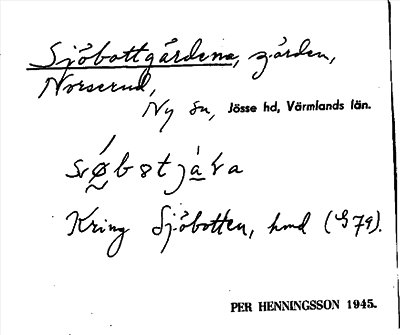 Sjöbottgårdena, gården,
Norserud,
Ny sn, Jösse hd, Värmlands län.
Kring Sjöbotten, hmd (G79).
PER HENNINGSSON 1945.